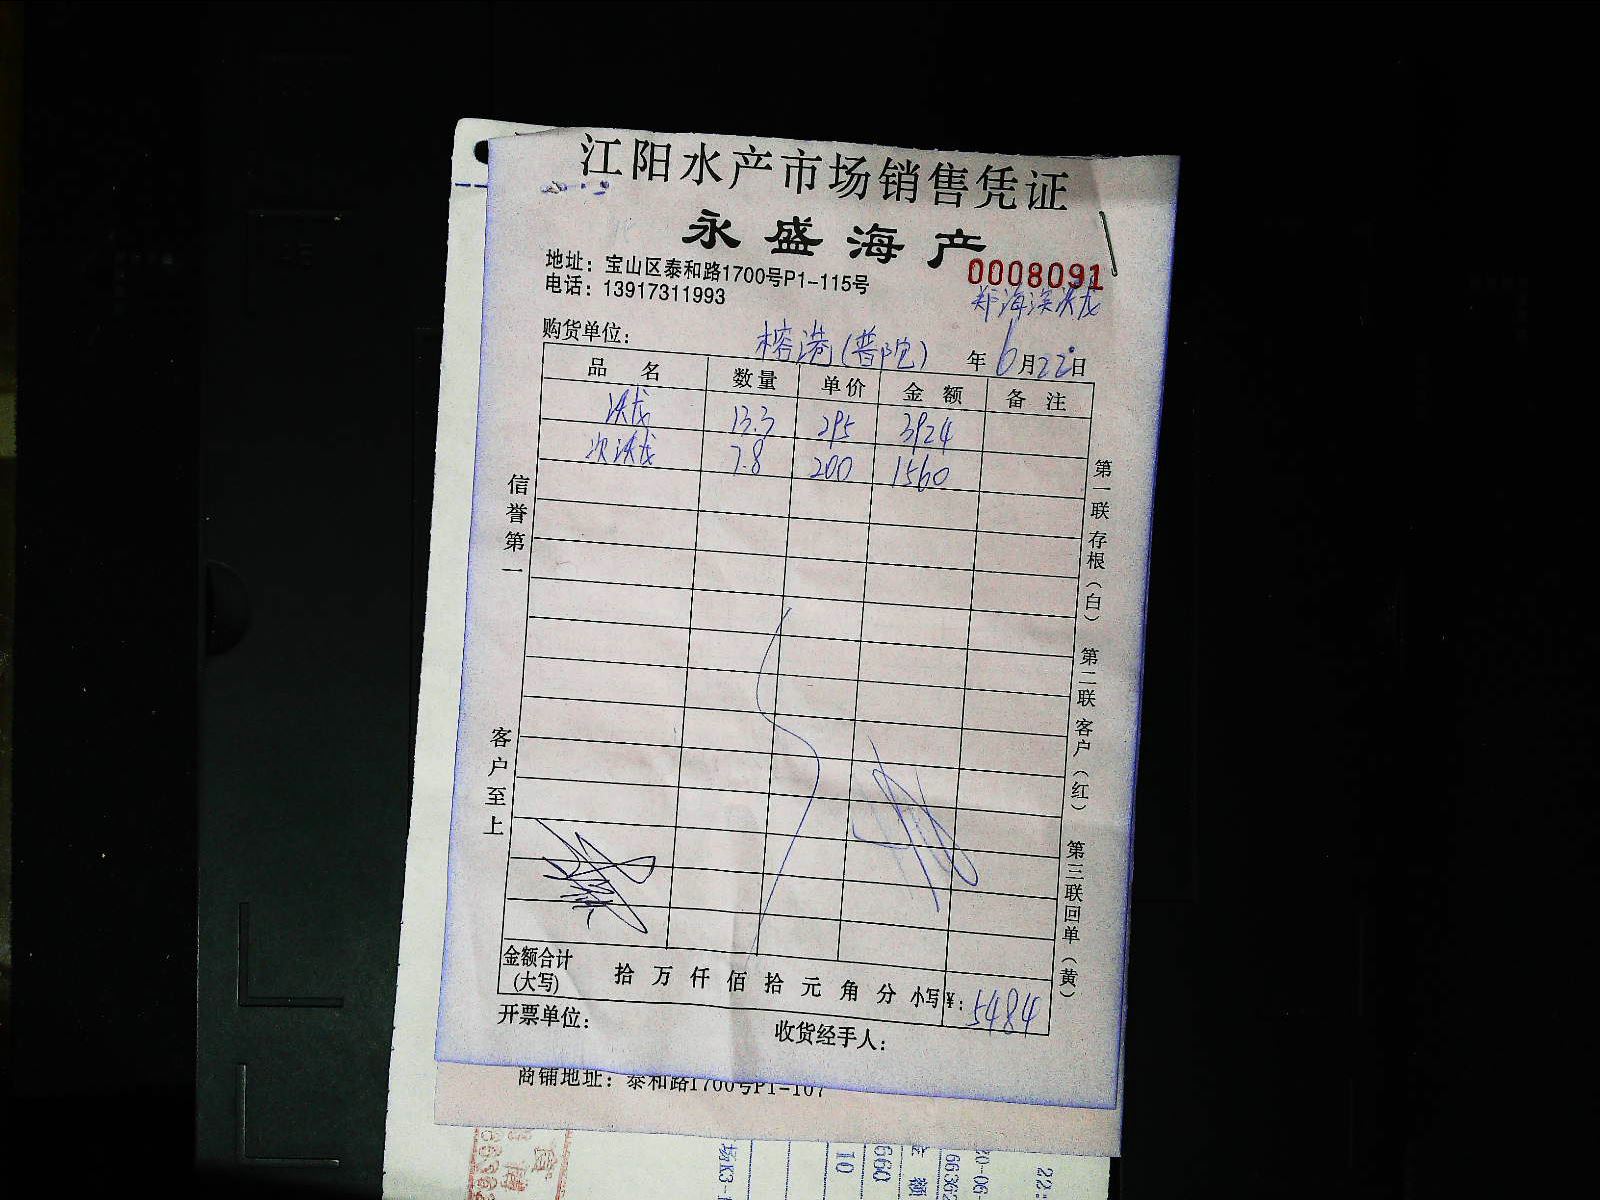 江阳水产市场销售凭证
永盛海产
地址：宝山区泰和路1700号P1-115号
0008091
电话：13917311993
郑海深沃龙
购货单位：榕港(普陀) 年6月22日
品名 数量 单价 金额 备注
沃龙 13.3 295 3924
次沃龙 7.8 200 1560
信誉第一
客户至上
第一联存根（白）
第二联客户（红）
第三联回单（黄）
金额合计(大写) 拾万仟佰拾元角分 小写¥：5484
开票单位：
收货经手人：
商铺地址：泰和路1700号P1-107
场K3-
10
660
额
66362
20-06-
22: